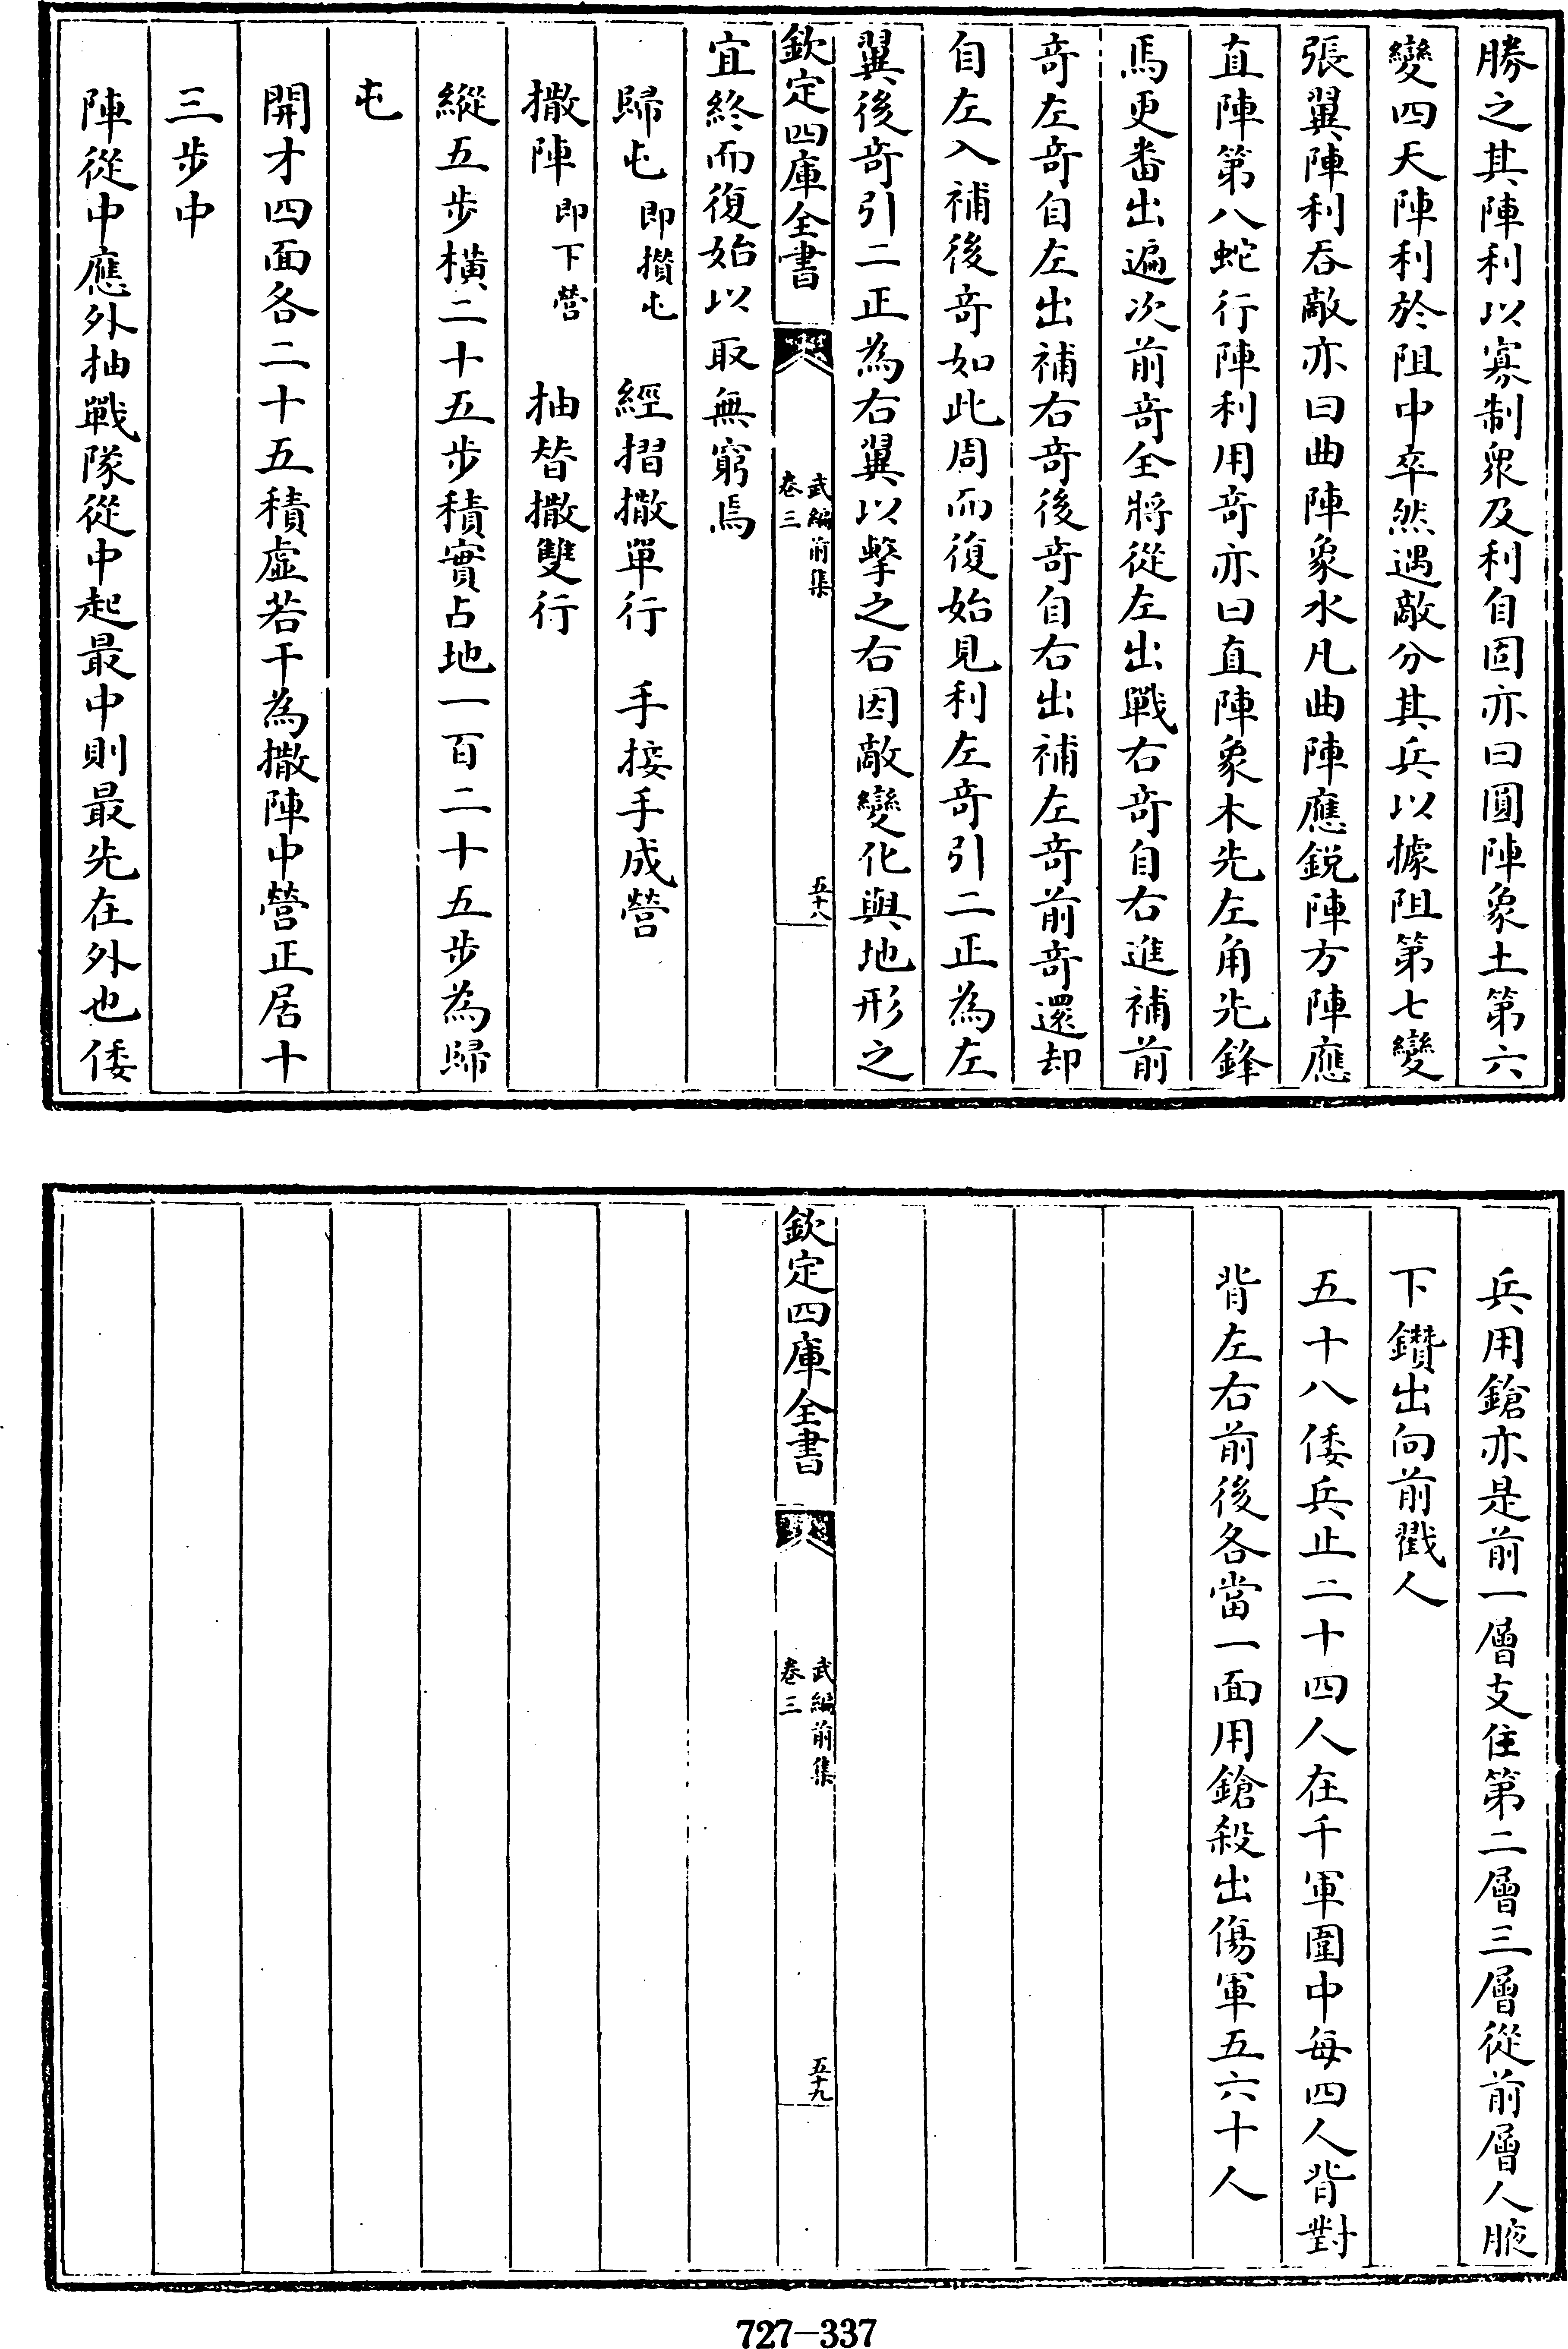 勝之其陣利以寡制衆及利自固亦曰圓陣象土第六
變四天陣利於阻中卒然遇敵分其兵以據阻第七變
張翼陣利吞敵亦曰曲陣象水凡曲陣應銳陣方陣應
直陣第八蛇行陣利用竒亦曰直陣象木先左角先鋒
馬更番出遍次前竒全將從左出戰右竒自右進補前
竒左竒自左出補右竒後竒自右出補左竒前竒還却
自左入補後竒如此周而復始見利左竒引二正為左
翼後竒引二正為右翼以擊之右因敵變化與地形之
欽定四庫全書
武編前集
卷三
五十八
宜終而復始以取無窮焉
歸屯即攢屯　經摺撒單行　手接手成營
撒陣即下營　抽替撒雙行
縱五步橫二十五步積實占地一百二十五步為歸
屯
開才四面各二十五積虛若干為撒陣中營正居十
三步中
陣從中應外抽戰隊從中起最中則最先在外也倭
兵用鎗亦是前一層支住第二層三層從前層人腋
下鑽出向前戳人
五十八倭兵止二十四人在千軍圍中每四人背對
背左右前後各當一面用鎗殺出傷軍五六十人
欽定四庫全書
武編前集
卷三
五十九
727-337